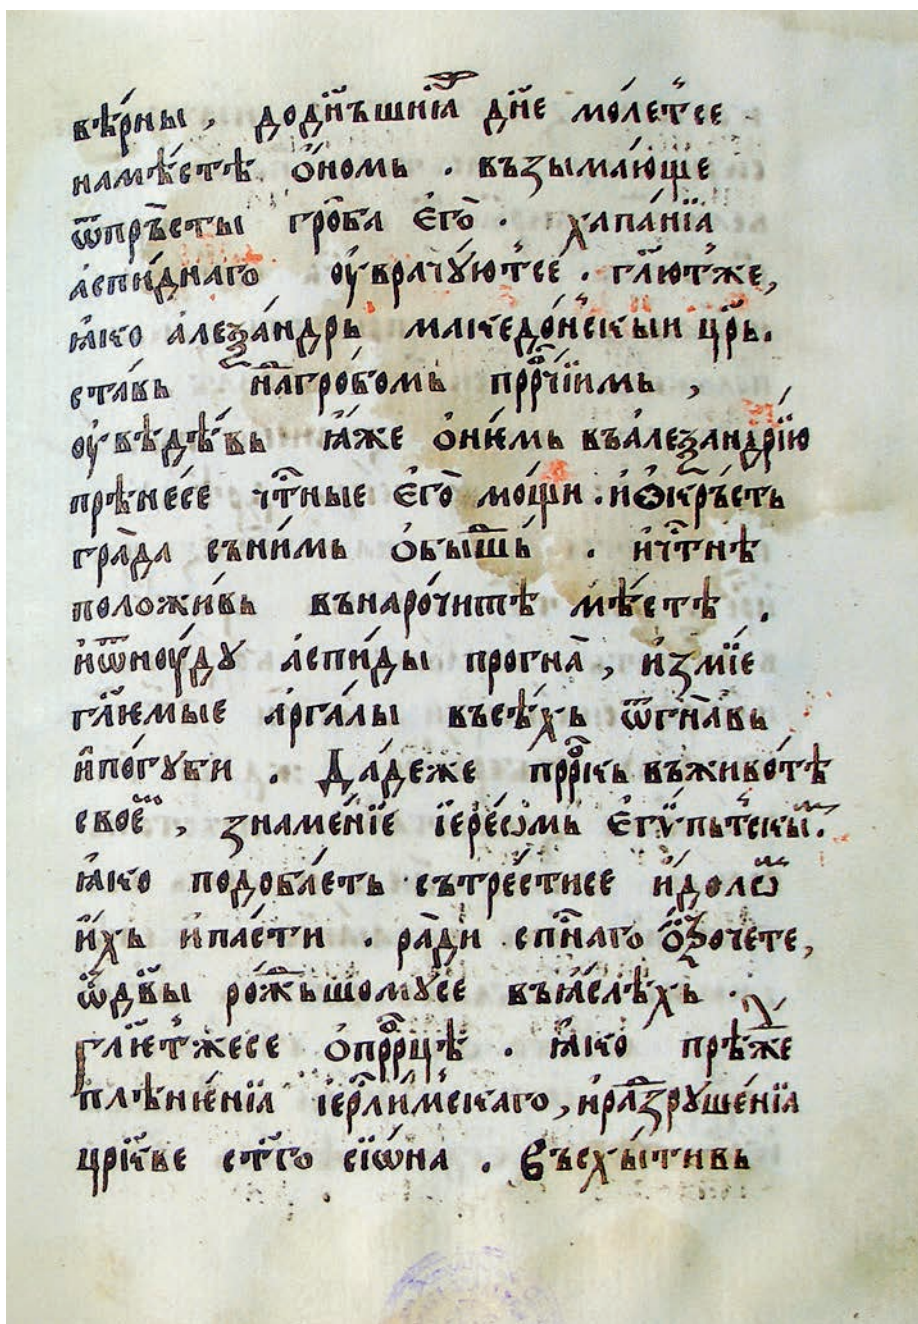 вѣ́рны , дод҃нъшнїа̑ д҃не мо́лет̾се
намѣ́стѣ ѻ҆́номь . възыма́юще
ѿпрь́сты гро́ба є҆го̀ . хапа́нїа
а҆спи́днаго ѹ҆врачꙋ́ют̾се . гл҃ют̾же,
ꙗ҆́ко а҆леѯа́ндрь македо́нскыи цр҃ь.
ста́вь на́гробомь прⷪ҇рчїимь ,
ѹ҆вѣ́дѣ́вь ꙗ҆́же ѻ҆не́мь въалеѯандрі́ю
прѣне́се чⷭ҇тные є҆го̀ мо́щи . и҆ѻ҆кр́ьсть
гра́да съни́мь ѻ҆бы́шⷣь . и҆чⷭ҇тнѣ
положи́вь въ наро́читѣ мѣ́стѣ .
и҆ѿнѹ́дꙋ а҆спи́ды прогна̀ , и҆змі́е
гл҃ꙗ҆мые а҆рга́лы въсѣ́хь ѿгна́вь
и҆по́гꙋби . Да́деже прⷪ҇ркь въживо́тѣ
свое҆́ , знаме́нїе і҆ере́ѡмь є҆гѵ́пьт̾скы̏.
ꙗ҆́ко подоба́еть сътре́стисе и҆́долѡ̏
и҆́хь и҆па́сти . ра́ди сп҃наго ѻ҆́трочете,
ѿд҃вы ро́жⷣьшомꙋсе въꙗ҆́слѣхь .
гл҃ет̾жесе ѻ҆прⷪ҇рцѣ . ꙗ҆́ко прѣ́жⷣе
плѣне́нїа і҆ерⷭ҇ли́мскаго , и҆раꙁрꙋше́нїа
цр҃кве ст҃го сїѡ́на . Въсхы́тивь